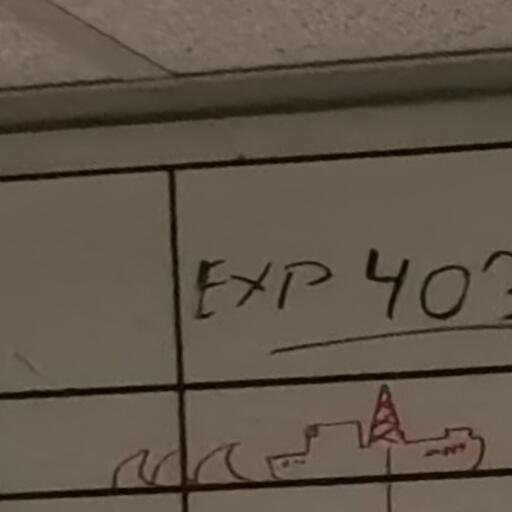 EXP 403